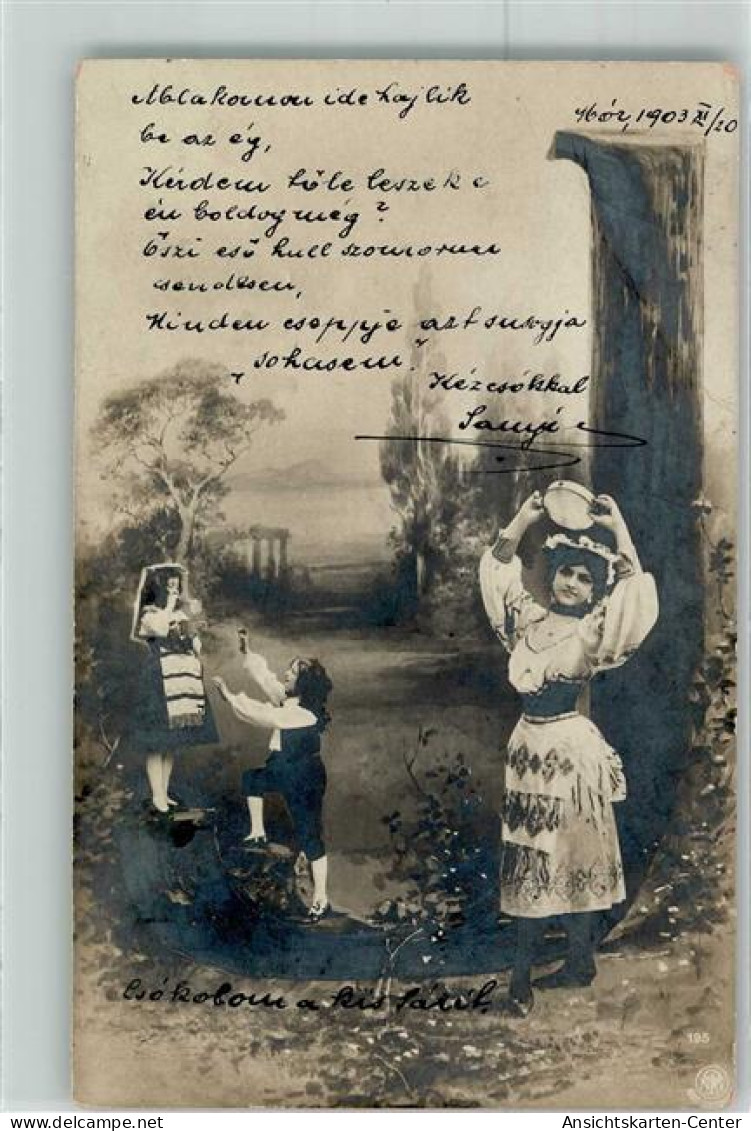 Ablakomon ide hajlik
be az ég,
Kérdem tőle leszek e
én boldog még?
Őszi eső hull szomorun
csendesen,
Minden cseppje azt susogja
„sohasem."
Mór, 1903 XI/20
Kézcsókkal
Sanyi
Csókolom a kis Sárit.
195
Ansichtskarten-Center